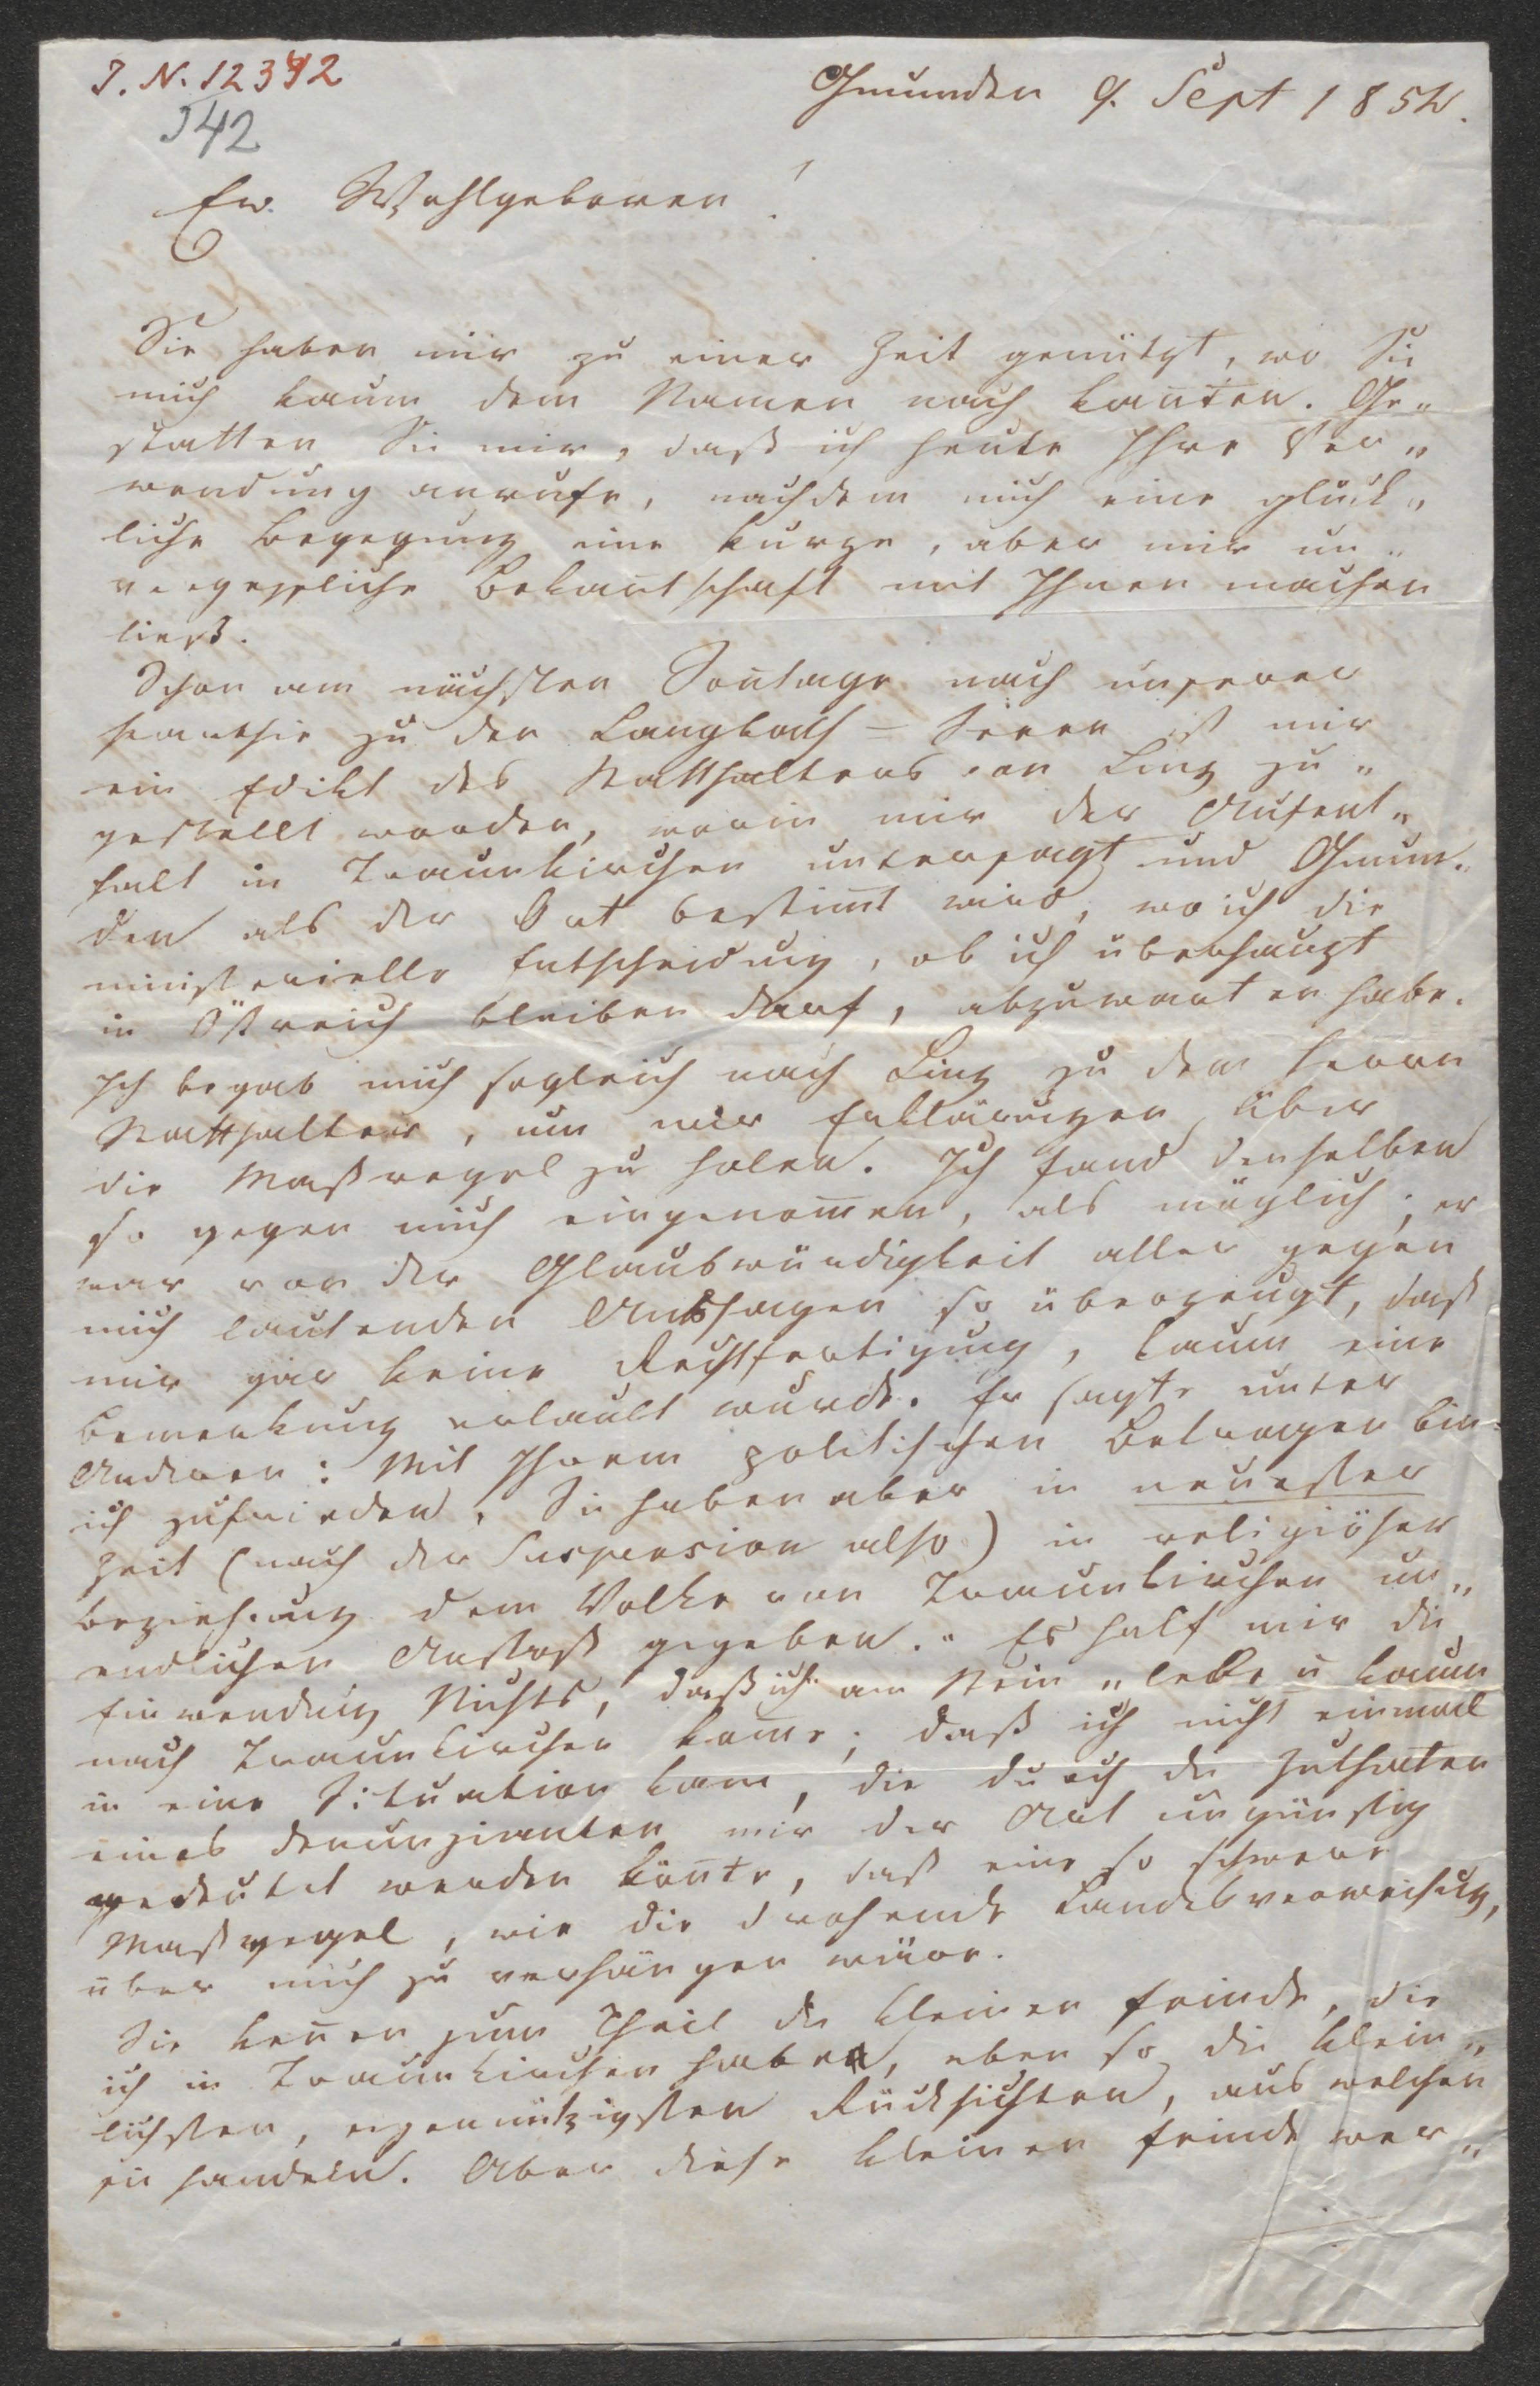 I. N. 12342
J42
Gmunden 9. Sept 1854.
Ew. Wohlgeboren!
Sie haben mir zu einer Zeit genützt, wo Sie
mich kaum dem Namen nach kan̄ten. Ge„
statten Sie mir, daß ich heute Ihre Ver„
wendung anrufe, nachdem mich eine glück„
liche Begegnung eine kurze, aber mir un„
vergeßliche Bekan̄tschaft mit Ihnen machen
ließ.
Schon am nächsten Son̄tage nach unserer
Parthie zu den Langbath=Seeen ist mir
ein Edikt des Statthalters von Linz zu„
gestellt worden, worin mir der Aufent„
halt in Traunkirchen untersagt und Gmun„
den als der Ort bestim̄t wird, wo ich die
ministerielle Entscheidung, ob ich überhaupt
in Östreich bleiben darf, abzuwarten habe.
Ich begab mich sogleich nach Linz zu dem Herrn
Statthalter, um mir Erklärungen über
die Maßregel zu holen. Ich fand denselben
so gegen mich eingenom̄en, als möglich; er
war von der Glaubwürdigkeit aller gegen
mich lautenden Aussagen so überzeugt, daß
mir gar keine Rechtfertigung, kaum eine
Bemerkung erlaubt wurde. Er sagte unter
Anderen: Mit Ihrem politischen Betragen bin
ich zufrieden, Sie haben aber in neuester
Zeit (nach der Suspension also) in religiöser
Beziehung dem Volke von Traunkirchen un„
endlichen Anstoß gegeben." Es half mir die
Einwendung Nichts, daß ich am Stein" lebe u kaum
nach Traunkirchen kom̄e; daß ich nicht einmal
in eine Situation kam, die durch die Zuthaten
eines Denunzianten mir der Art ungünstig
gedeutet werden kön̄te, daß eine so schwere
Maßregel, wie die drohende Landesverweisung,
über mich zu verhängen wäre.
Sie ken̄en zum Theil die kleinen Feinde, die
ich in Traunkirchen habe, eben so die klein„
lichsten, eigennützigsten Rücksichten, aus welchen
sie handeln. Aber diese kleinen Feinde wer„